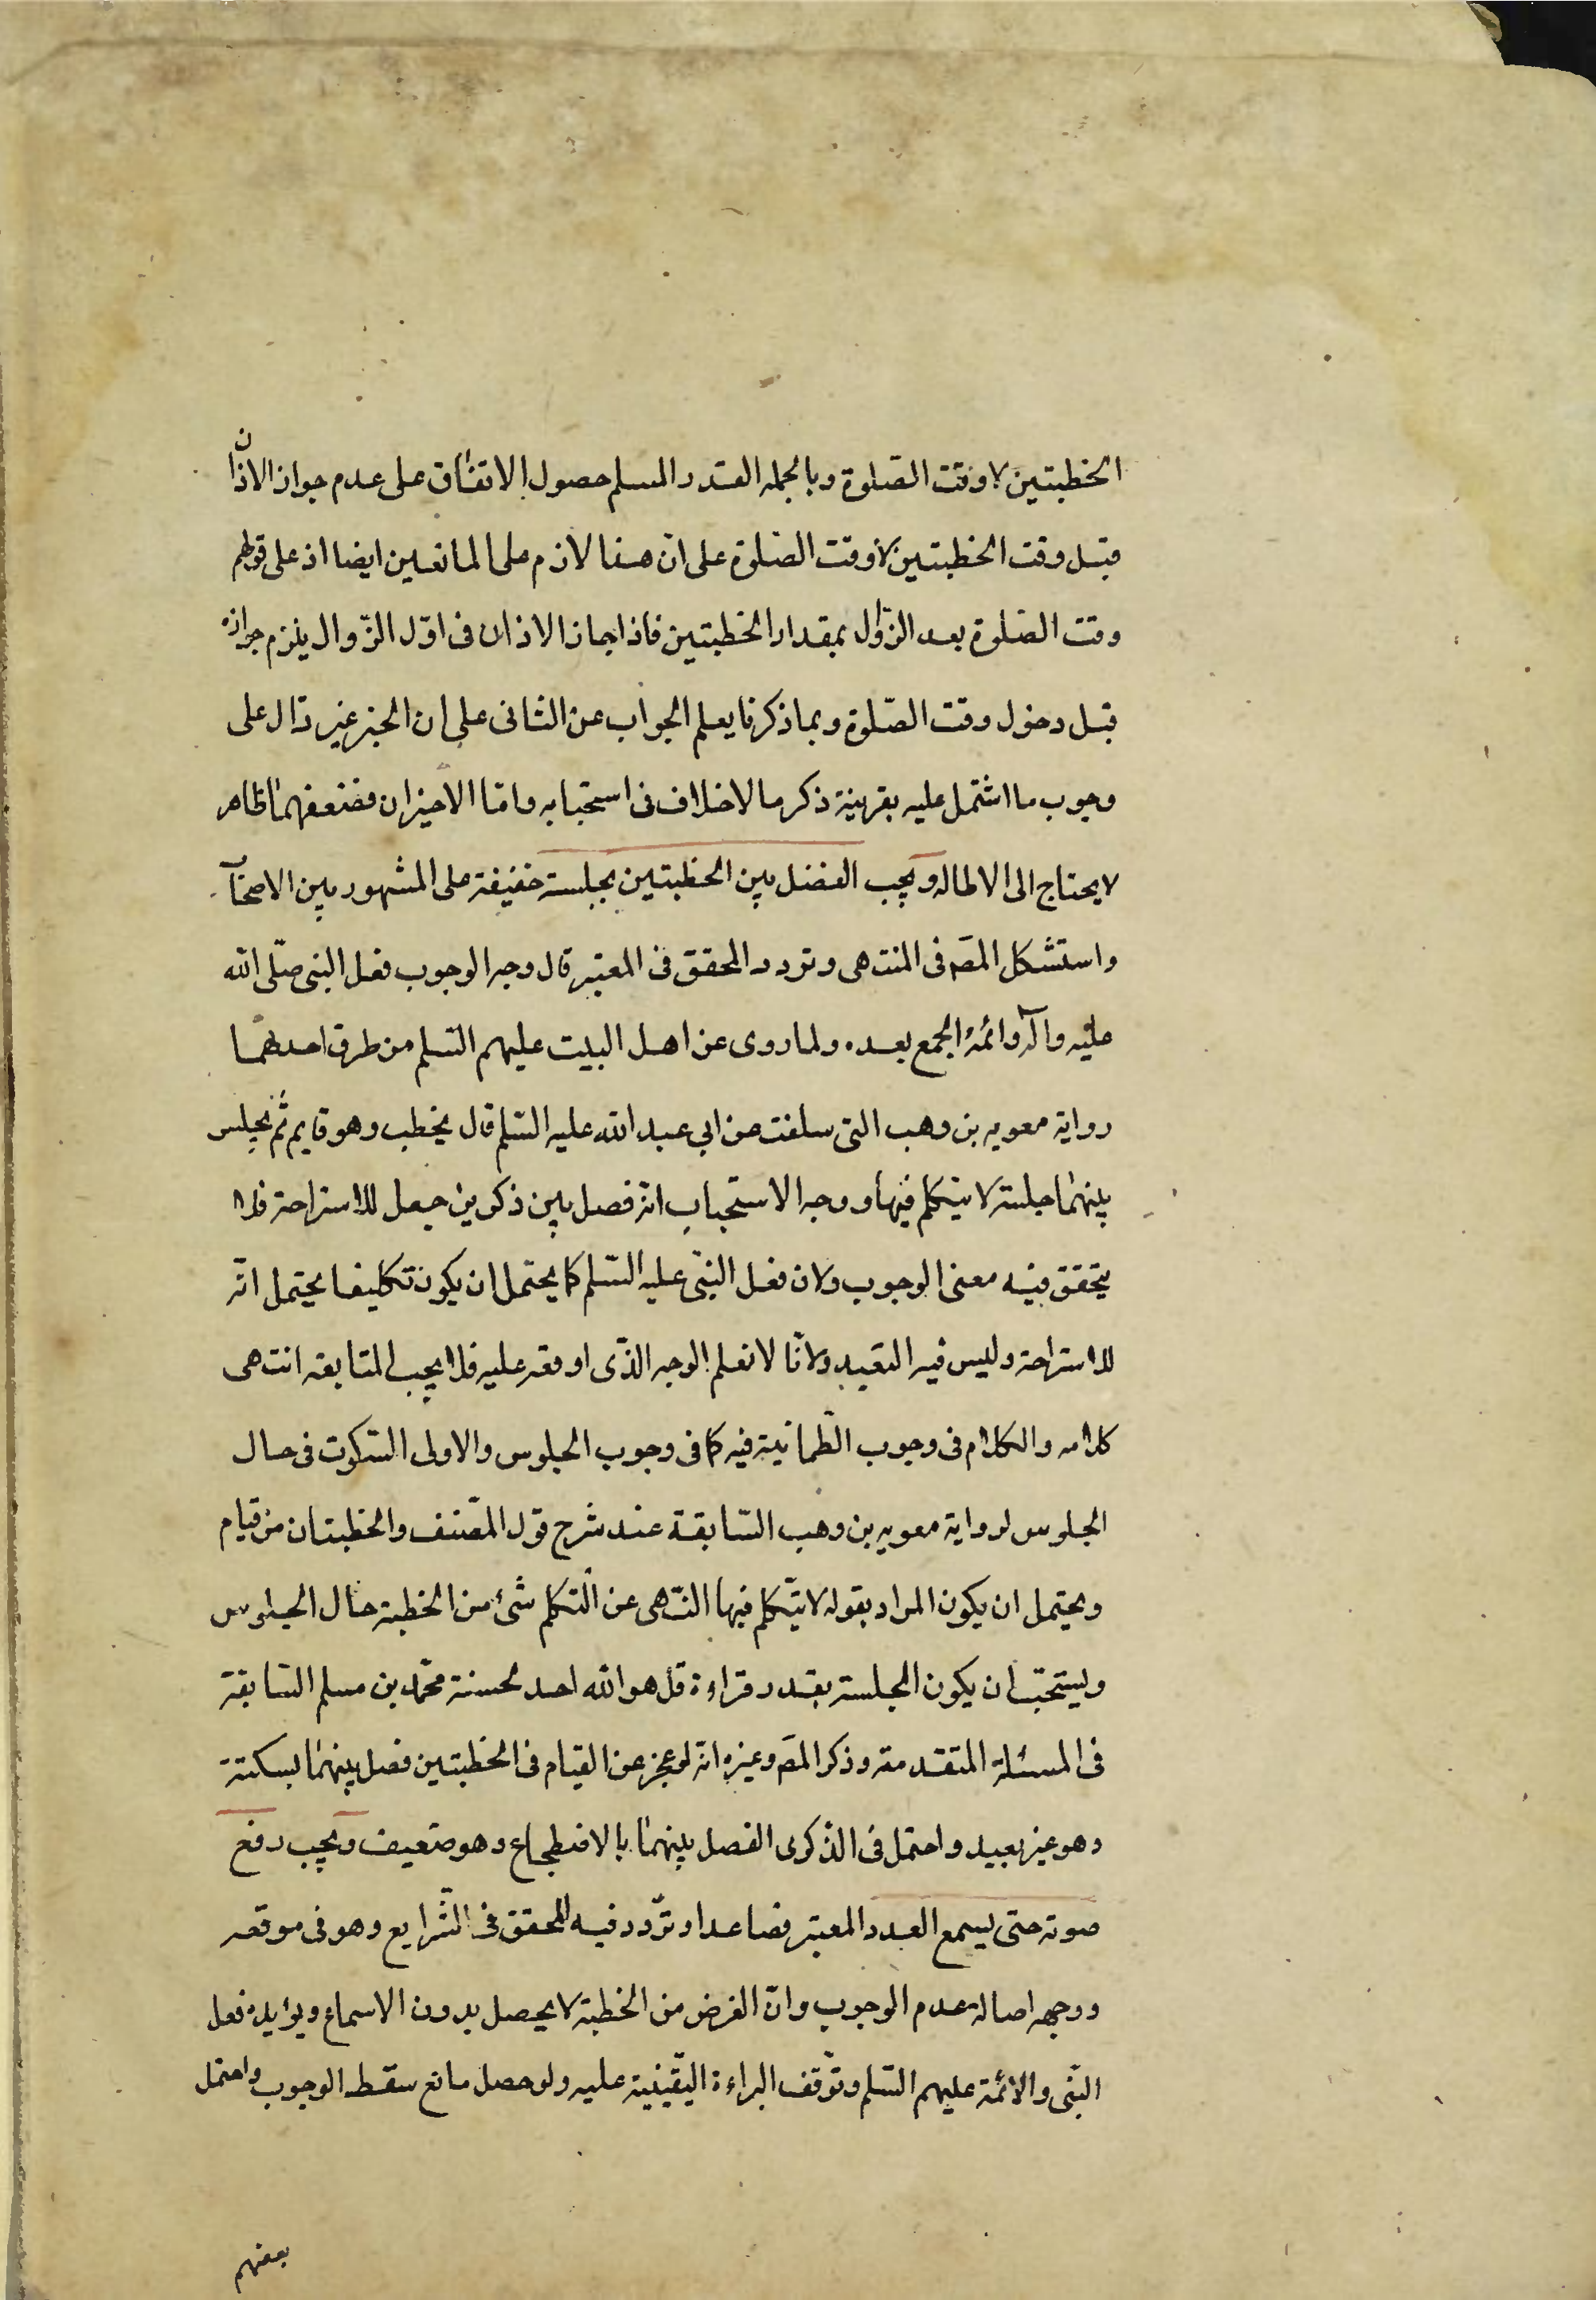 الخطبتين لا وقت الصّلوة وبالجمله القدر المسلم حصول الاتفاق على عدم جواز الاذان
قبل وقت الخطبتين لا وقت الصّلوة على انّ هذا لازم على المانعين ايضا اذ على قولهم
وقت الصّلوة بعد الزّوال بمقدار الخطبتين فاذا جاز الاذان فى اوّل الزّوال يلزم جوازه
قبل دخول وقت الصّلوة وبما ذكرنا يعلم الجواب عن الثانى على ان الخبر غير دالّ على
وجوب ما اشتمل عليه بقرينة ذكر ما لا خلاف فى استحبابه وامّا الاخيران فضعفهما ظاهر
لا يحتاج الى الاطاله ويجب الفصل بين الخطبتين بجلسة خفيفة على المشهور بين الاصحاب
واستشكل المصّ فى المنتهى وتردد المحقق فى المعتبر قال وجه الوجوب فعل النبى صلّى الله
عليه وآله وائمة الجمع بعده ولما روى عن اهل البيت عليهم السّلم من طرق احدها
رواية معويه بن وهب التى سلفت عن ابى عبد الله عليه السّلم قال يخطب وهو قايم ثم يجلس
بينهما جلسة لا يتكلم فيها ووجه الاستحباب انّه فصل بين ذكرين جعل للاستراحة فلا
يتحقق فيه معنى الوجوب ولان فعل النبّى عليه السّلم كما يحتمل ان يكون تكليفا يحتمل انّه
للاستراحة وليس فيه التعبد ولانّا لا نعلم الوجه الذّى اوقعه عليه فلا يجب المتابعة انتهى
كلامه والكلام فى وجوب الطّمانينة فيه كما فى وجوب الجلوس والاولى السّكوت فى حال
الجلوس لرواية معويه بن وهب السّابقة عند شرح قول المصّنف والخطبتان من قيام
ويحتمل ان يكون المراد بقوله لا يتكلم فيها النّهى عن التّكلم شئ من الخطبة حال الجلوس
ويستحّب ان يكون الجلسة بقدر قراءة قل هو الله احد لحسنة محمّد بن مسلم السّابقة
فى المسئلة المتقدمة وذكر المصّ وغيره انّه لو عجز عن القيام فى الخطبتين فصل بينهما بسكتة
وهو غير بعيد واحتمل فى الذّكرى الفصل بينهما بالاضطجاع وهو ضعيف ويجب رفع
صوته حتى يسمع العدد المعتبر فصاعدا وتردّد فيه المحقق فى الشّرايع وهو فى موقعه
ووجهه اصالة عدم الوجوب وانّ الغرض من الخطبة لا يحصل بدون الاسماع ويؤيده فعل
النبّى والائمّة عليهم السّلم وتوّقف البراءة اليّقينية عليه ولو حصل مانع سقط الوجوب واحتمل
بعضهم